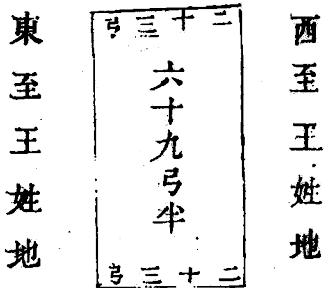 西至王姓地
二十三弓
六十九弓半
二十三弓
東至王姓地